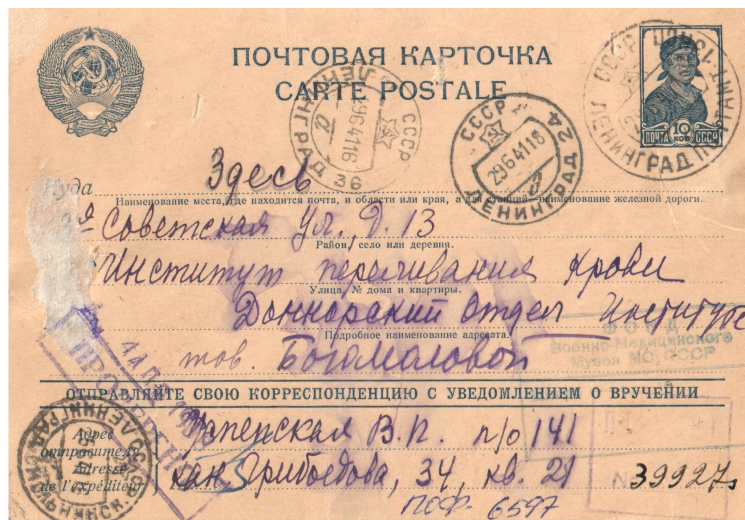 ПОЧТОВАЯ КАРТОЧКА
CARTE POSTALE
ПОЧТА 10 КОП. СССР
СССР ЛЕНИНГРАД
ЛЕНИНГРАД 36 СССР
2964116
СССР ЛЕНИНГРАД 24
2964118
Здесь
Куда
Наименование места, где находится почта, и области или края, а для станций наименование железной дороги.
3я Советская ул., Д. 13
Район, село или деревня.
Институт переливания крови
Улица, № дома и квартиры.
Доннорский Отдел Института
Подробное наименование адресата.
тов. Богомоловой
ФОНД
Военно-Медицинского
Музея МО СССР
ОТПРАВЛЯЙТЕ СВОЮ КОРРЕСПОНДЕНЦИЮ С УВЕДОМЛЕНИЕМ О ВРУЧЕНИИ
Адрес
отправителя
Adresse
de l'expéditeur
В.П. п/о 141
кан. Грибоедова, 34, кв. 21
39927
ПОФ- 6597